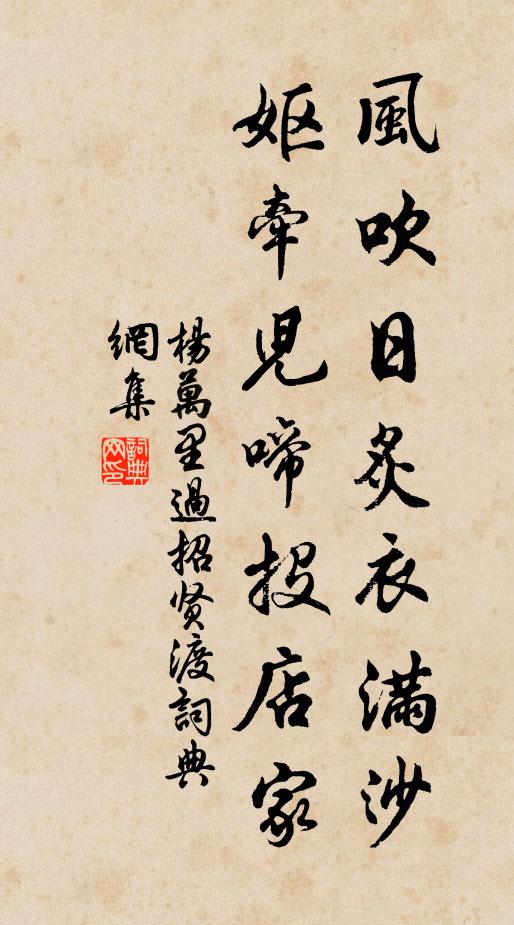 風吹日炙衣滿沙
妪牽兒啼投店家
楊萬里過招贤渡詞典
網集
詞典网印